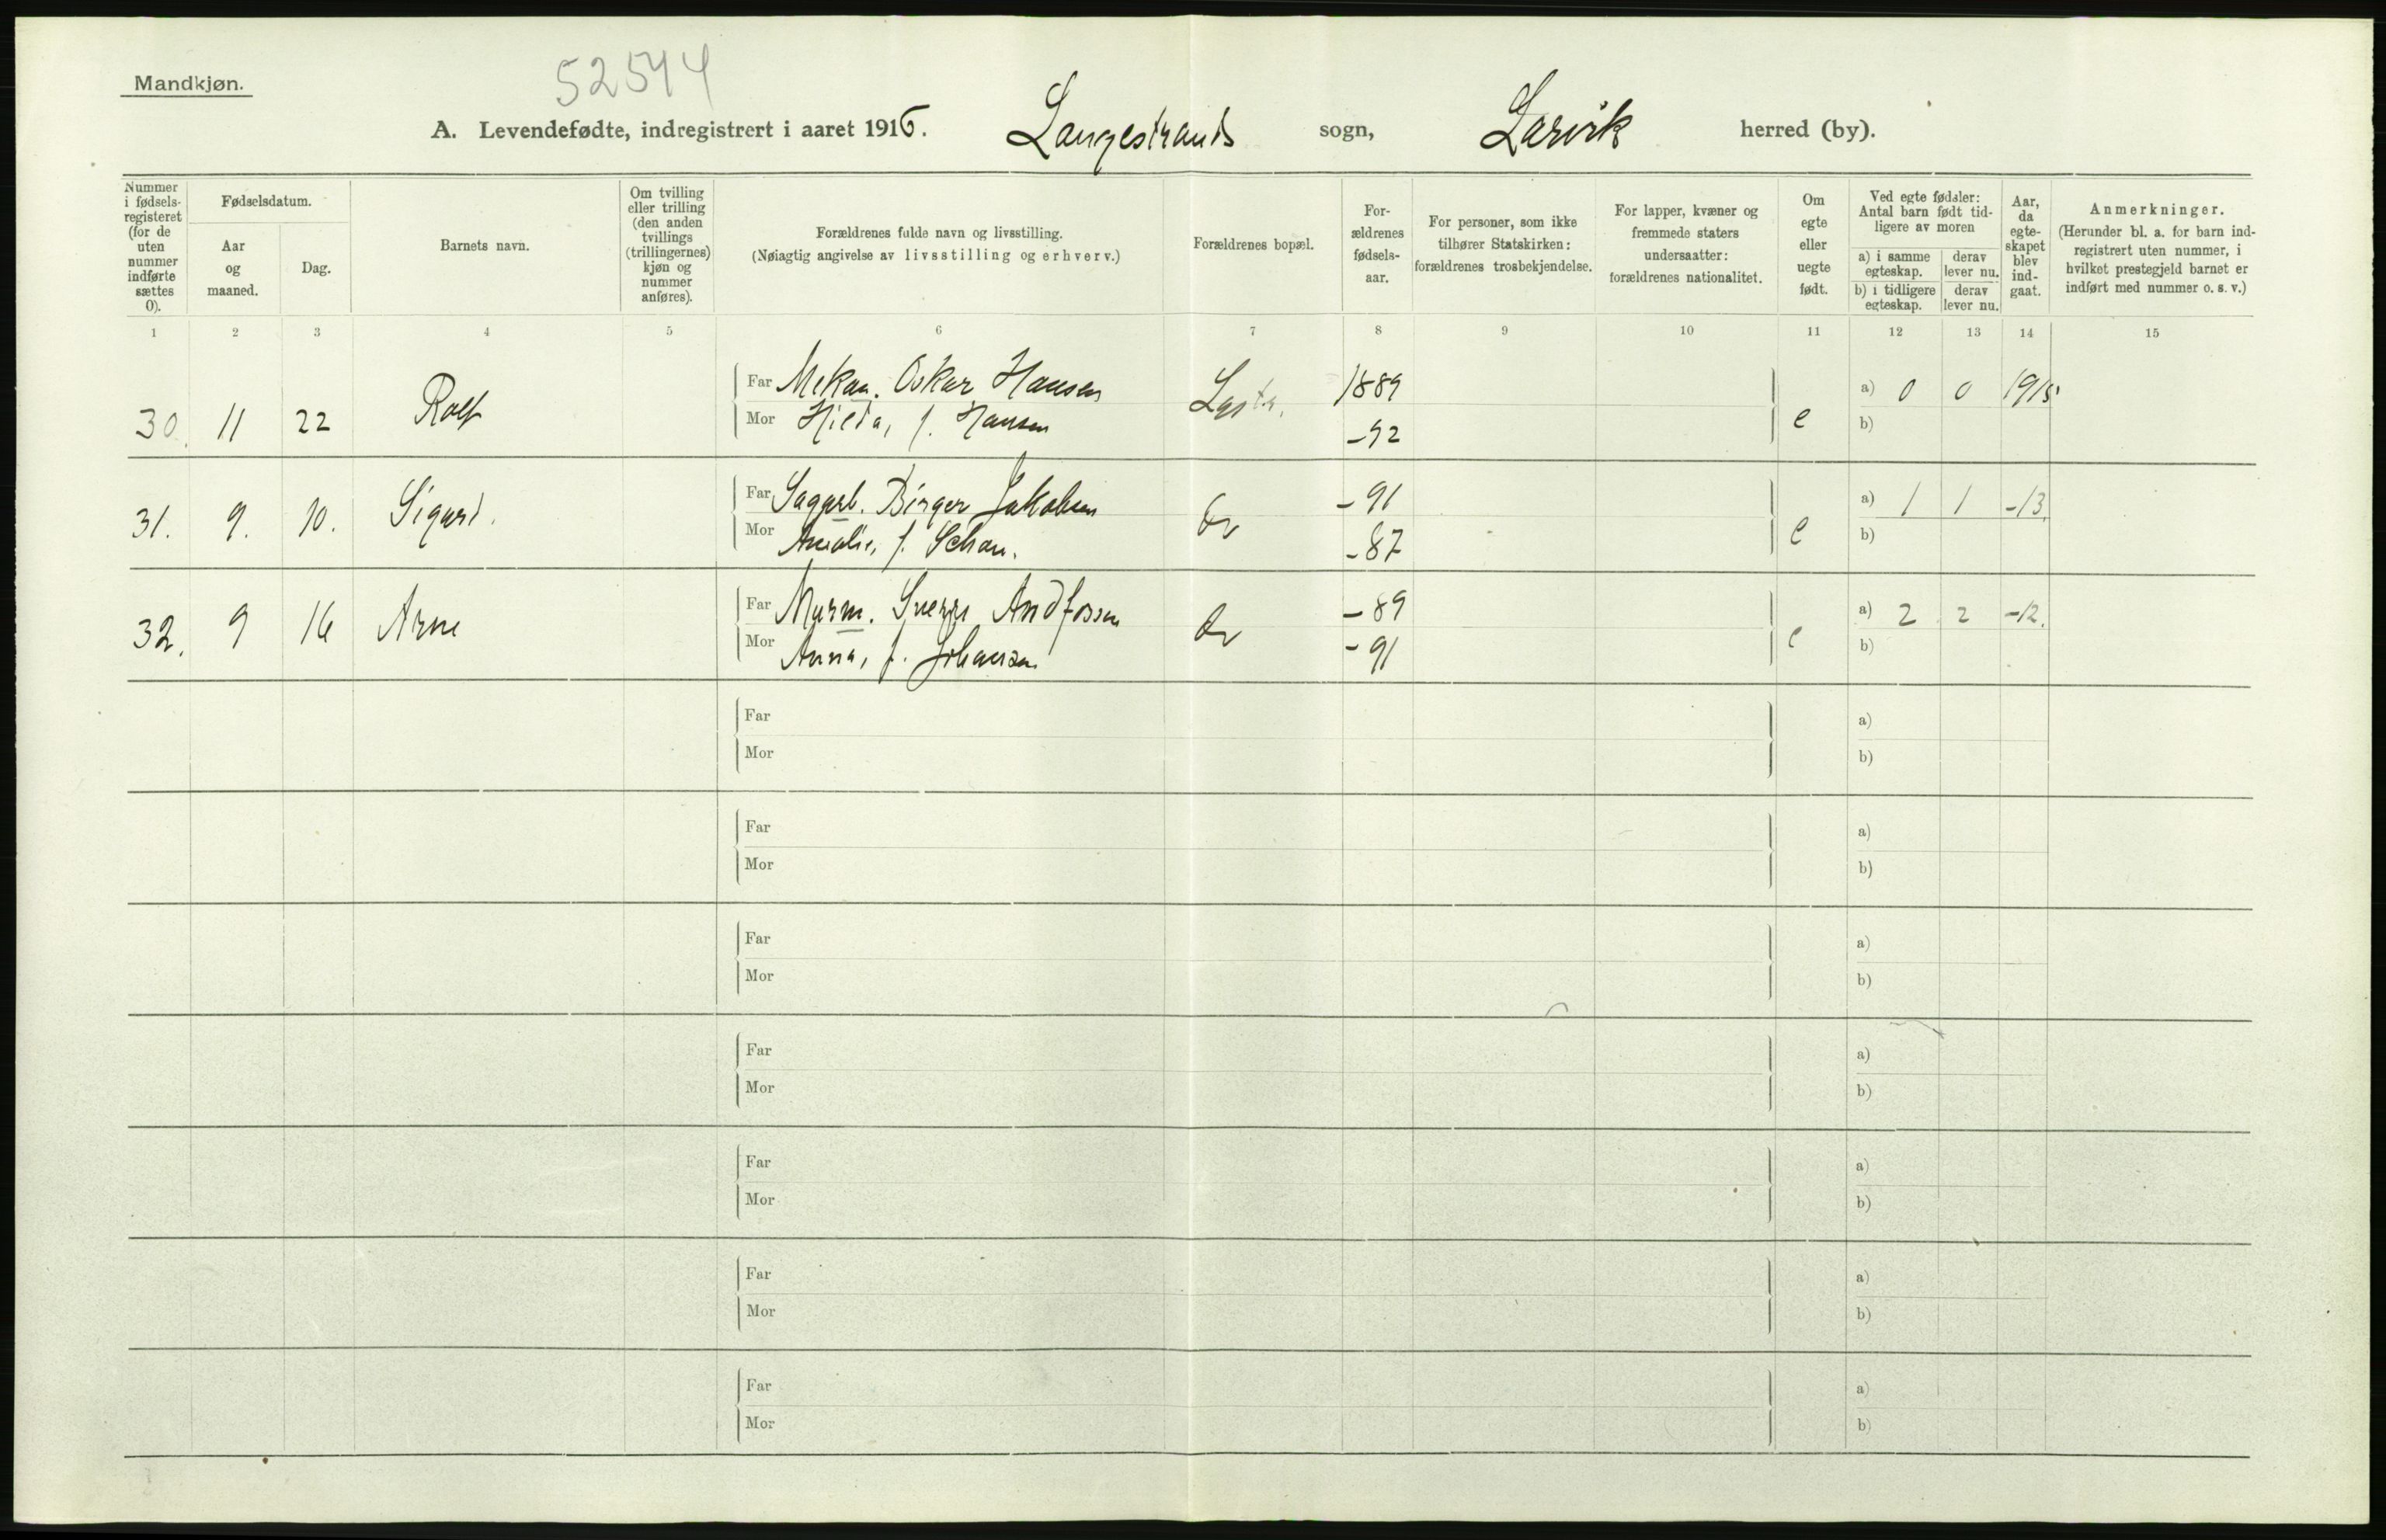 Mandkjøn.
52544
A. Levendefødte, indregistrert i aaret 1916. Langestrands sogn, Larvik herred (by).
Nummer i fødsels-registeret (for de uten nummer indførte sættes 0).
Fødselsdatum.
Aar og maaned.
Dag.
Barnets navn.
Om tvilling eller trilling (den anden tvillings (trillingernes) kjøn og nummer anføres).
Forældrenes fulde navn og livsstilling.
(Nøiagtig angivelse av livsstilling og erhverv.)
Forældrenes bopæl.
For-ældrenes fødsels-aar.
For personer, som ikke tilhører Statskirken: forældrenes trosbekjendelse.
For lapper, kvæner og fremmede staters undersaatter: forældrenes nationalitet.
Om egte eller uegte født.
Ved egte fødsler: Antal barn født tid-ligere av moren
a) i samme egteskap.
derav lever nu.
b) i tidligere egteskap.
derav lever nu.
Aar, da egte-skapet blev ind-gaat.
Anmerkninger.
(Herunder bl. a. for barn ind-registrert uten nummer, i hvilket prestegjeld barnet er indført med nummer o. s. v.)
1 2 3 4 5 6 7 8 9 10 11 12 13 14 15
30. 11 22 Rolf Far Mekan. Oskar Hansen 1889 e a) 0 0 1915
Mor Hilda, f. Hansen -92 b)
31. 9. 10. Sigurd. Far Sagarb. Birger Jakobsen -91 e a) 1 1 -13.
Mor Amalie, f. Schau. -87 b)
32. 9 16 Arne Far Murm. Sverre Andfossen -89 e a) 2 2 -12.
Mor Anna, f. Johansen -91 b)
Far a)
Mor b)
Far a)
Mor b)
Far a)
Mor b)
Far a)
Mor b)
Far a)
Mor b)
Far a)
Mor b)
Far a)
Mor b)